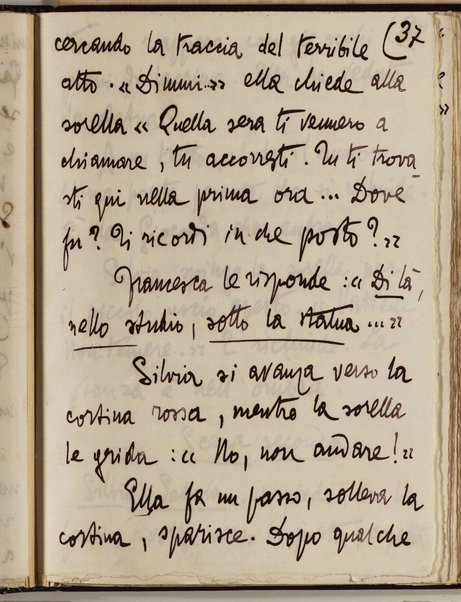 cercando la traccia del terribile (37
atto. «Dimmi» ella chiede alla
sorella «Quella sera ti vennero a
chiamare, tu accorresti. Tu ti trova
sti qui nella prima ora... Dove
fu? Ti ricordi in che posto?»
Francesca le risponde: «Di là,
nello studio, sotto la statua...»
Silvia si avanza verso la
cortina rossa, mentre la sorella
le grida: «No, non andare!»
Ella fa un passo, solleva la
cortina, sparisce. Dopo qualche